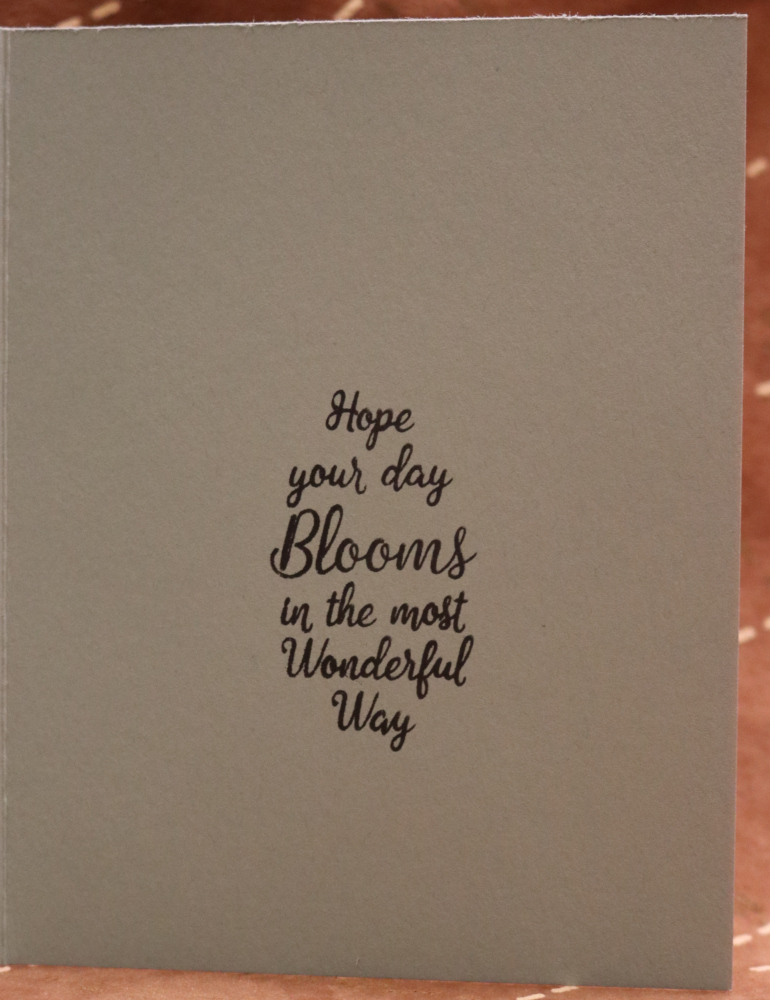 Hope
your day
Blooms
in the most
Wonderful
Way